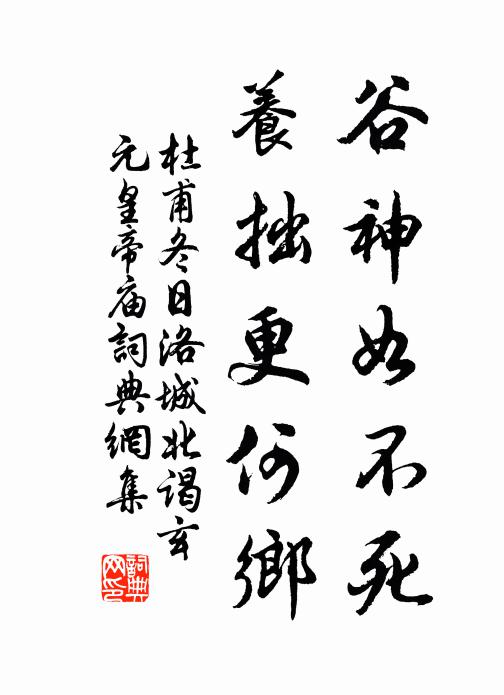 谷神如不死
養拙更何鄉
杜甫冬日洛城北謁玄
元皇帝庙詞典網集
詞典
网印